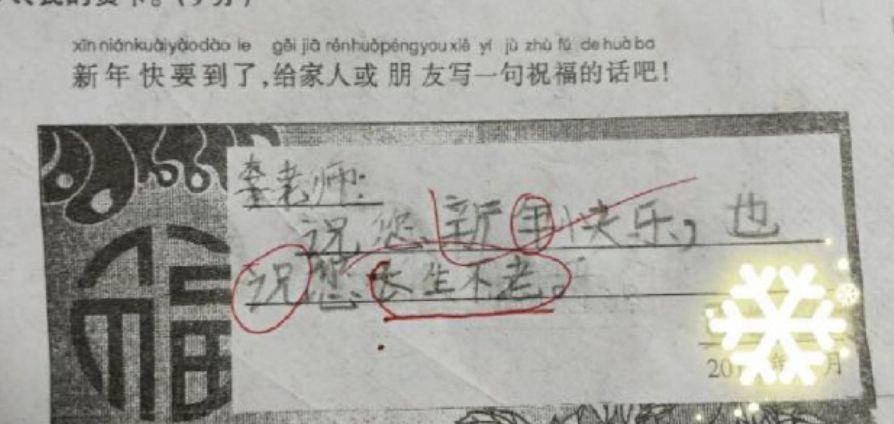 xīn nián kuài yào dào le gěi jiā rén huò péng you xiě yí jù zhù fú de huà ba
新年快要到了,给家人或朋友写一句祝福的话吧!
李老师:
祝您新年快乐,也
祝您长生不老。
福
20
月